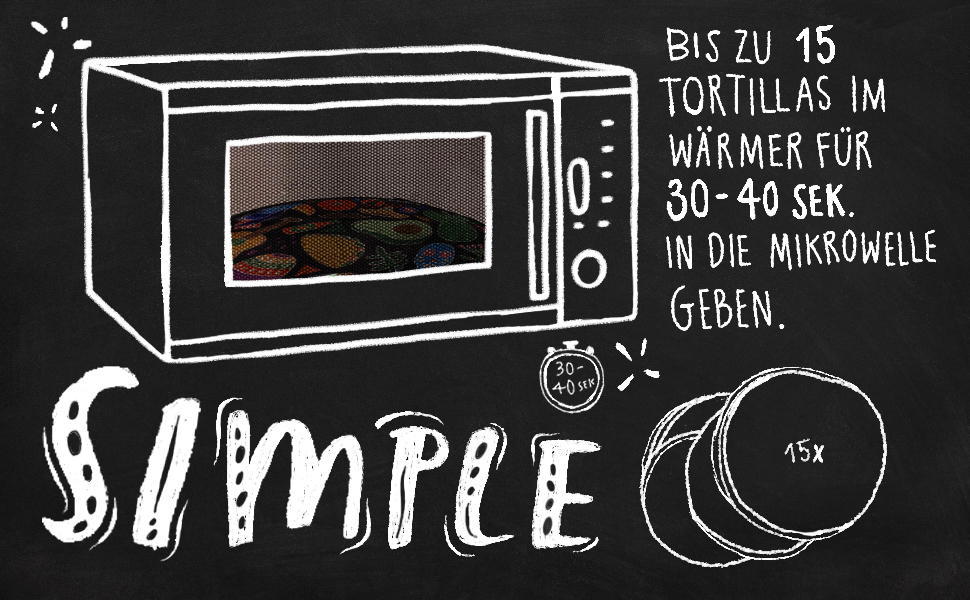 BIS ZU 15
TORTILLAS IM
WÄRMER FÜR
30-40 SEK.
IN DIE MIKROWELLE
GEBEN.
30-
40 SEK
SIMPLE
15x